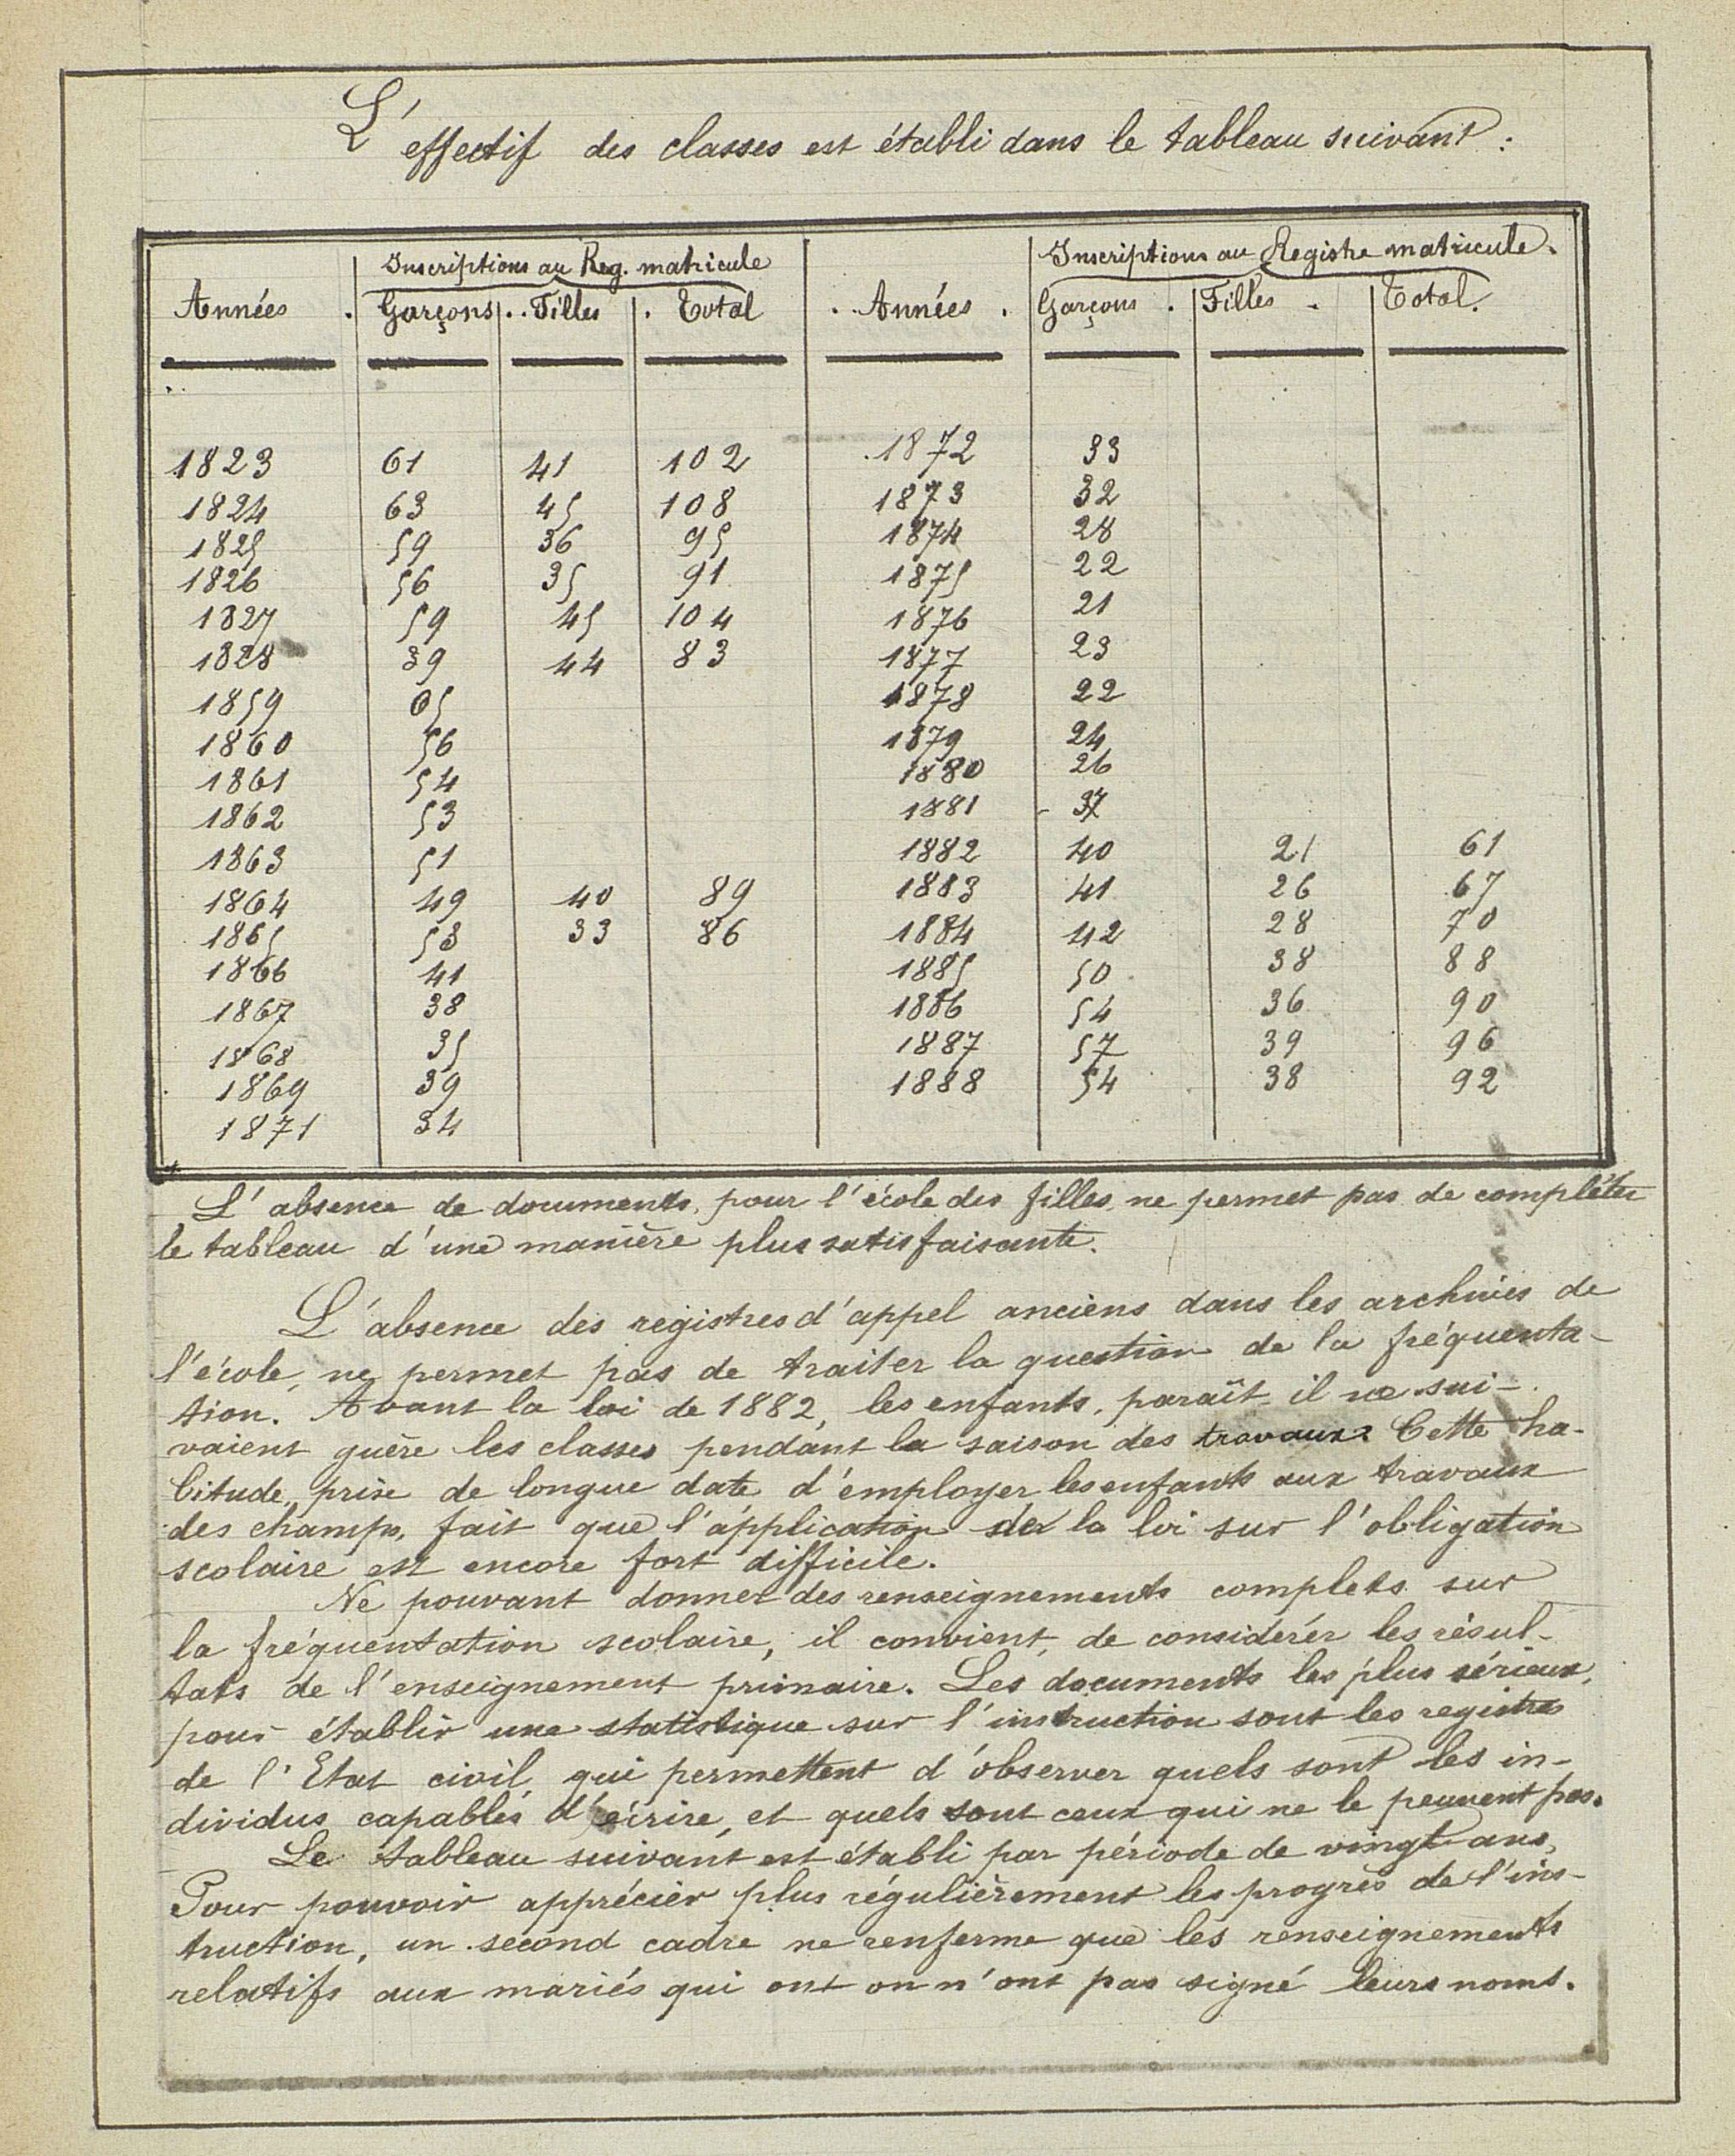 L'effectif des classes est établi dans le tableau suivant :
Inscriptions au Reg. matricule Inscriptions au Registre matricule.
Années . Garçons . . Filles . Total . Années . Garçons . Filles . Total.
1823 61 41 102 1872 33
1824 63 45 108 1873 32
1825 59 36 95 1874 28
1826 56 35 91 1875 22
1827 59 45 104 1876 21
1828 39 44 83 1877 23
1859 65 1878 22
1860 56 1879 24
1861 54 1880 26
1862 53 1881 37
1863 51 1882 40 21 61
1864 49 40 89 1883 41 26 67
1865 53 33 86 1884 42 28 70
1866 41 1885 50 38 88
1867 38 1886 54 36 90
1868 35 1887 57 39 96
1869 39 1888 54 38 92
1871 34
L'absence de documents, pour l'école des filles, ne permet pas de compléter
le tableau d'une manière plus satisfaisante.
L'absence des registres d'appel anciens dans les archives de
l'école, ne permet pas de traiter la question de la fréquenta-
tion. Avant la loi de 1882, les enfants, paraît-il ne sui-
vaient guère les classes pendant la saison des travaux. Cette ha-
bitude, prise de longue date d'employer les enfants aux travaux
des champs, fait que l'application de la loi sur l'obligation
scolaire est encore fort difficile.
Ne pouvant donner des renseignements complets sur
la fréquentation scolaire, il convient de considérer les résul-
tats de l'enseignement primaire. Les documents les plus sérieux,
pour établir une statistique sur l'instruction sont les registres
de l'Etat civil qui permettent d'observer quels sont les in-
dividus capables d'écrire, et quels sont ceux qui ne le peuvent pas.
Le tableau suivant est établi par période de vingt ans,
Pour pouvoir apprécier plus régulièrement les progrès de l'ins-
truction, un second cadre ne renferme que les renseignements
relatifs aux mariés qui ont ou n'ont pas signé leurs noms.